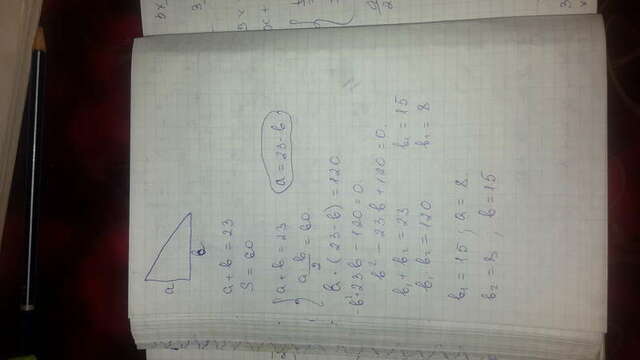 a
b
a + b = 23
S = 60
a + b = 23 a = 23 - b
a b / 2 = 60
b · (23 - b) = 120
-b² + 23b - 120 = 0
b² - 23b + 120 = 0.
b₁ + b₂ = 23 b₂ = 15
b₁ · b₂ = 120 b₁ = 8
b₁ = 15 ; a = 8.
b₂ = 8 ; b = 15